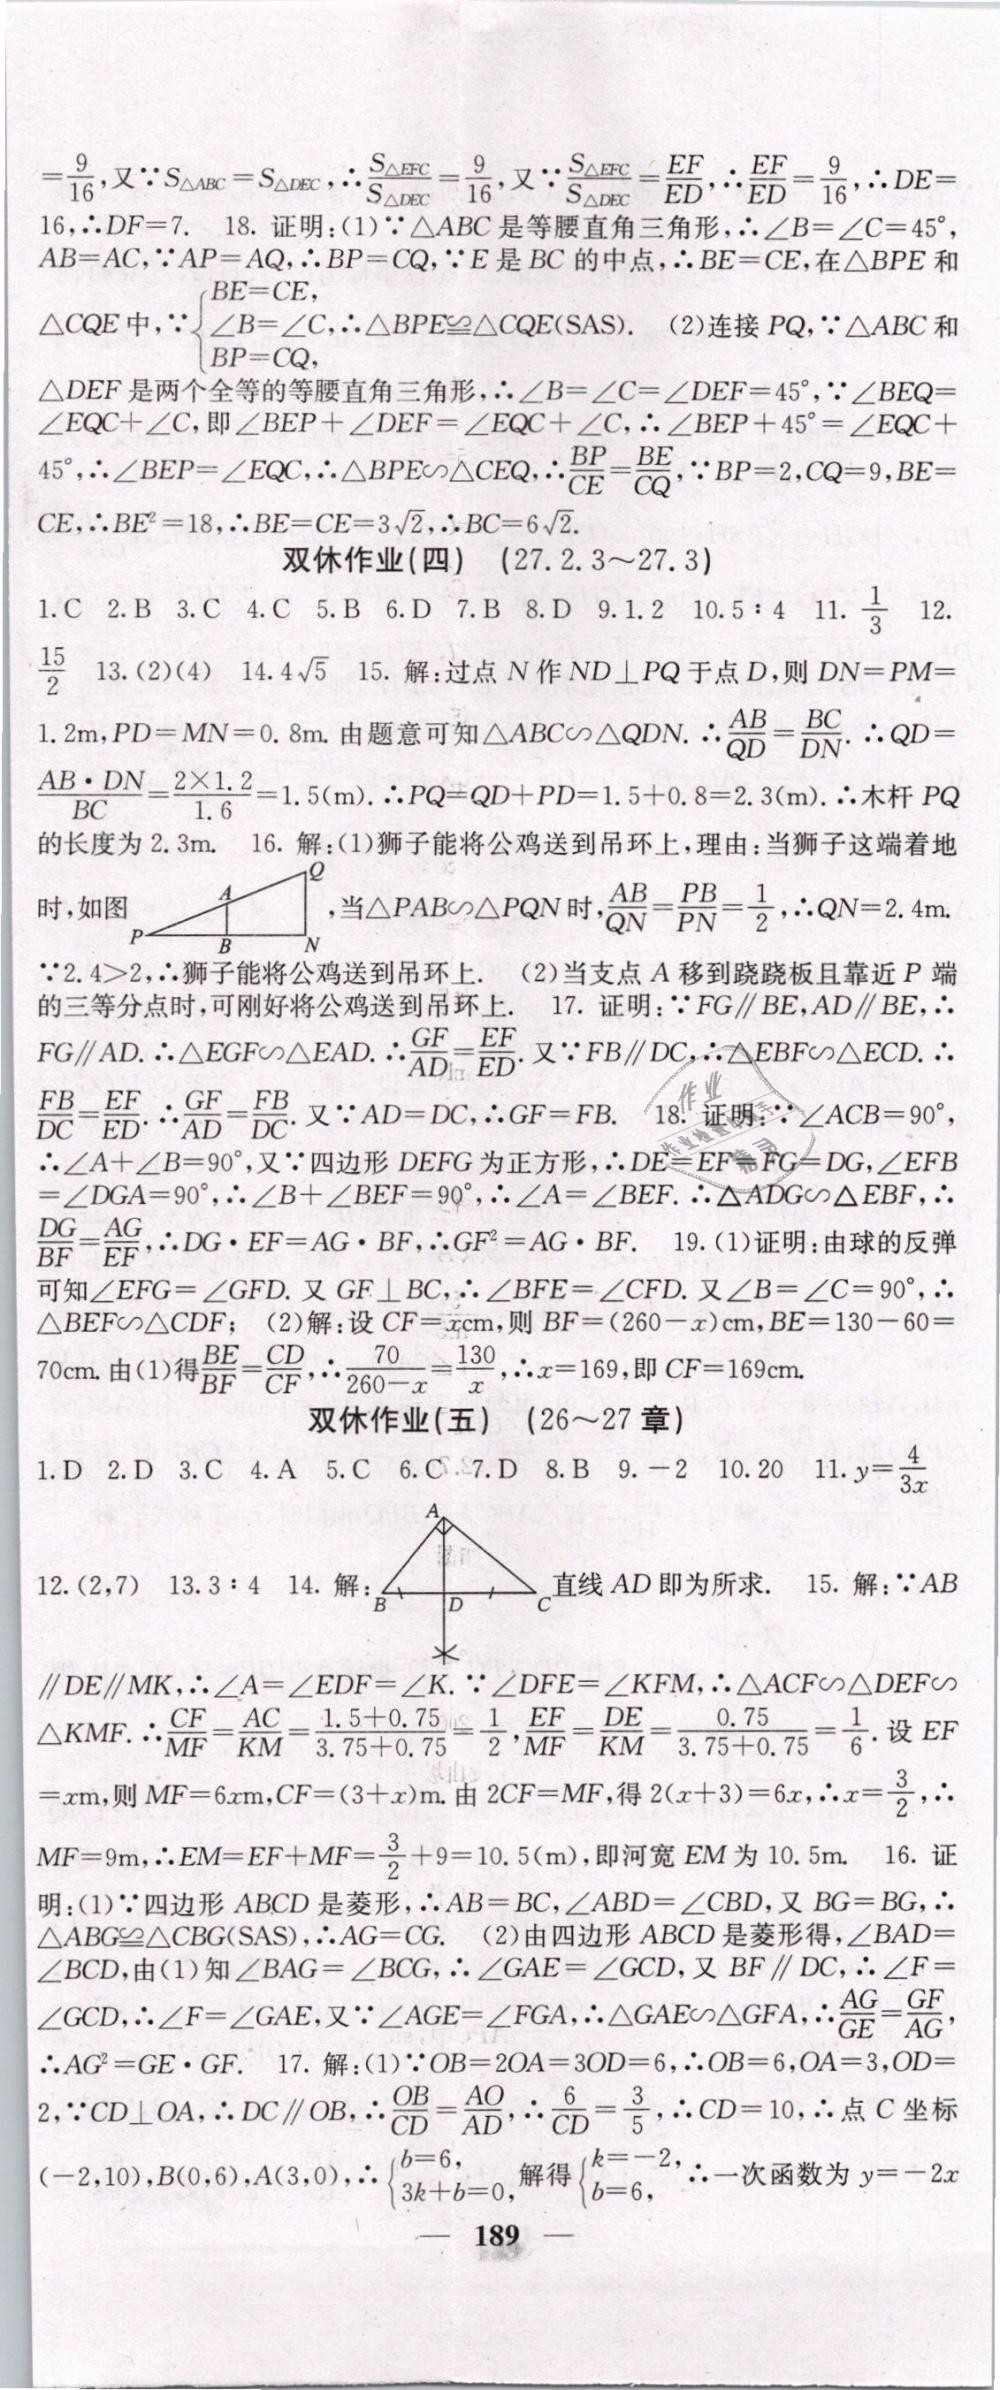 =9/16,又∵S△ABC=S△DEC,∴S△EFC/S△DEC=9/16,又∵S△EFC/S△DEC=EF/ED,∴EF/ED=9/16,∴DE=
16,∴DF=7. 18. 证明:(1)∵△ABC是等腰直角三角形,∴∠B=∠C=45°,
AB=AC,∵AP=AQ,∴BP=CQ,∵E是BC的中点,∴BE=CE,在△BPE和
△CQE中,∵{BE=CE, ∠B=∠C, BP=CQ, ∴△BPE≌△CQE(SAS). (2)连接PQ,∵△ABC和
△DEF是两个全等的等腰直角三角形,∴∠B=∠C=∠DEF=45°,∵∠BEQ=
∠EQC+∠C,即∠BEP+∠DEF=∠EQC+∠C,∴∠BEP+45°=∠EQC+
45°,∴∠BEP=∠EQC,∴△BPE∽△CEQ,∴BP/CE=BE/CQ,∵BP=2,CQ=9,BE=
CE,∴BE²=18,∴BE=CE=3√2,∴BC=6√2.
双休作业(四) (27.2.3~27.3)
1.C 2.B 3.C 4.C 5.B 6.D 7.B 8.D 9.1.2 10.5∶4 11. 1/3 12.
15/2 13.(2)(4) 14.4√5 15. 解:过点N作ND⊥PQ于点D,则DN=PM=
1.2m,PD=MN=0.8m.由题意可知△ABC∽△QDN.∴AB/QD=BC/DN.∴QD=
AB·DN/BC=2×1.2/1.6=1.5(m).∴PQ=QD+PD=1.5+0.8=2.3(m).∴木杆PQ
的长度为2.3m. 16. 解:(1)狮子能将公鸡送到吊环上,理由:当狮子这端着地
时,如图 P A B Q N ,当△PAB∽△PQN时,AB/QN=PB/PN=1/2,∴QN=2.4m.
∵2.4>2,∴狮子能将公鸡送到吊环上. (2)当支点A移到跷跷板且靠近P端
的三等分点时,可刚好将公鸡送到吊环上. 17. 证明:∵FG∥BE,AD∥BE,∴
FG∥AD.∴△EGF∽△EAD.∴GF/AD=EF/ED.又∵FB∥DC,∴△EBF∽△ECD.∴
FB/DC=EF/ED.∴GF/AD=FB/DC.又∵AD=DC,∴GF=FB. 18. 证明:∵∠ACB=90°,
∴∠A+∠B=90°,又∵四边形DEFG为正方形,∴DE=EF=FG=DG,∠EFB
=∠DGA=90°,∴∠B+∠BEF=90°,∴∠A=∠BEF.∴△ADG∽△EBF,∴
DG/BF=AG/EF,∴DG·EF=AG·BF,∴GF²=AG·BF. 19.(1)证明:由球的反弹
可知∠EFG=∠GFD.又GF⊥BC,∴∠BFE=∠CFD.又∠B=∠C=90°,∴
△BEF∽△CDF; (2)解:设CF=xcm,则BF=(260-x)cm,BE=130-60=
70cm.由(1)得BE/BF=CD/CF,∴70/(260-x)=130/x,∴x=169,即CF=169cm.
双休作业(五) (26~27章)
1.D 2.D 3.C 4.A 5.C 6.C 7.D 8.B 9.-2 10.20 11.y=4/3x
12.(2,7) 13.3∶4 14. 解: A B D C 直线AD即为所求. 15. 解:∵AB
∥DE∥MK,∴∠A=∠EDF=∠K.∵∠DFE=∠KFM,∴△ACF∽△DEF∽
△KMF.∴CF/MF=AC/KM=(1.5+0.75)/(3.75+0.75)=1/2,EF/MF=DE/KM=0.75/(3.75+0.75)=1/6.设EF
=xm,则MF=6xm,CF=(3+x)m.由2CF=MF,得2(x+3)=6x,∴x=3/2,∴
MF=9m,∴EM=EF+MF=3/2+9=10.5(m),即河宽EM为10.5m. 16. 证
明:(1)∵四边形ABCD是菱形,∴AB=BC,∠ABD=∠CBD,又BG=BG,∴
△ABG≌△CBG(SAS),∴AG=CG. (2)由四边形ABCD是菱形得,∠BAD=
∠BCD,由(1)知∠BAG=∠BCG,∴∠GAE=∠GCD,又BF∥DC,∴∠F=
∠GCD,∴∠F=∠GAE,又∵∠AGE=∠FGA,∴△GAE∽△GFA,∴AG/GE=GF/AG,
∴AG²=GE·GF. 17. 解:(1)∵OB=2OA=3OD=6,∴OB=6,OA=3,OD=
2,∵CD⊥OA,∴DC∥OB,∴OB/CD=AO/AD,∴6/CD=3/5,∴CD=10,∴点C坐标
(-2,10),B(0,6),A(3,0),∴{b=6, 3k+b=0, 解得{k=-2, b=6, ∴一次函数为y=-2x
— 189 —